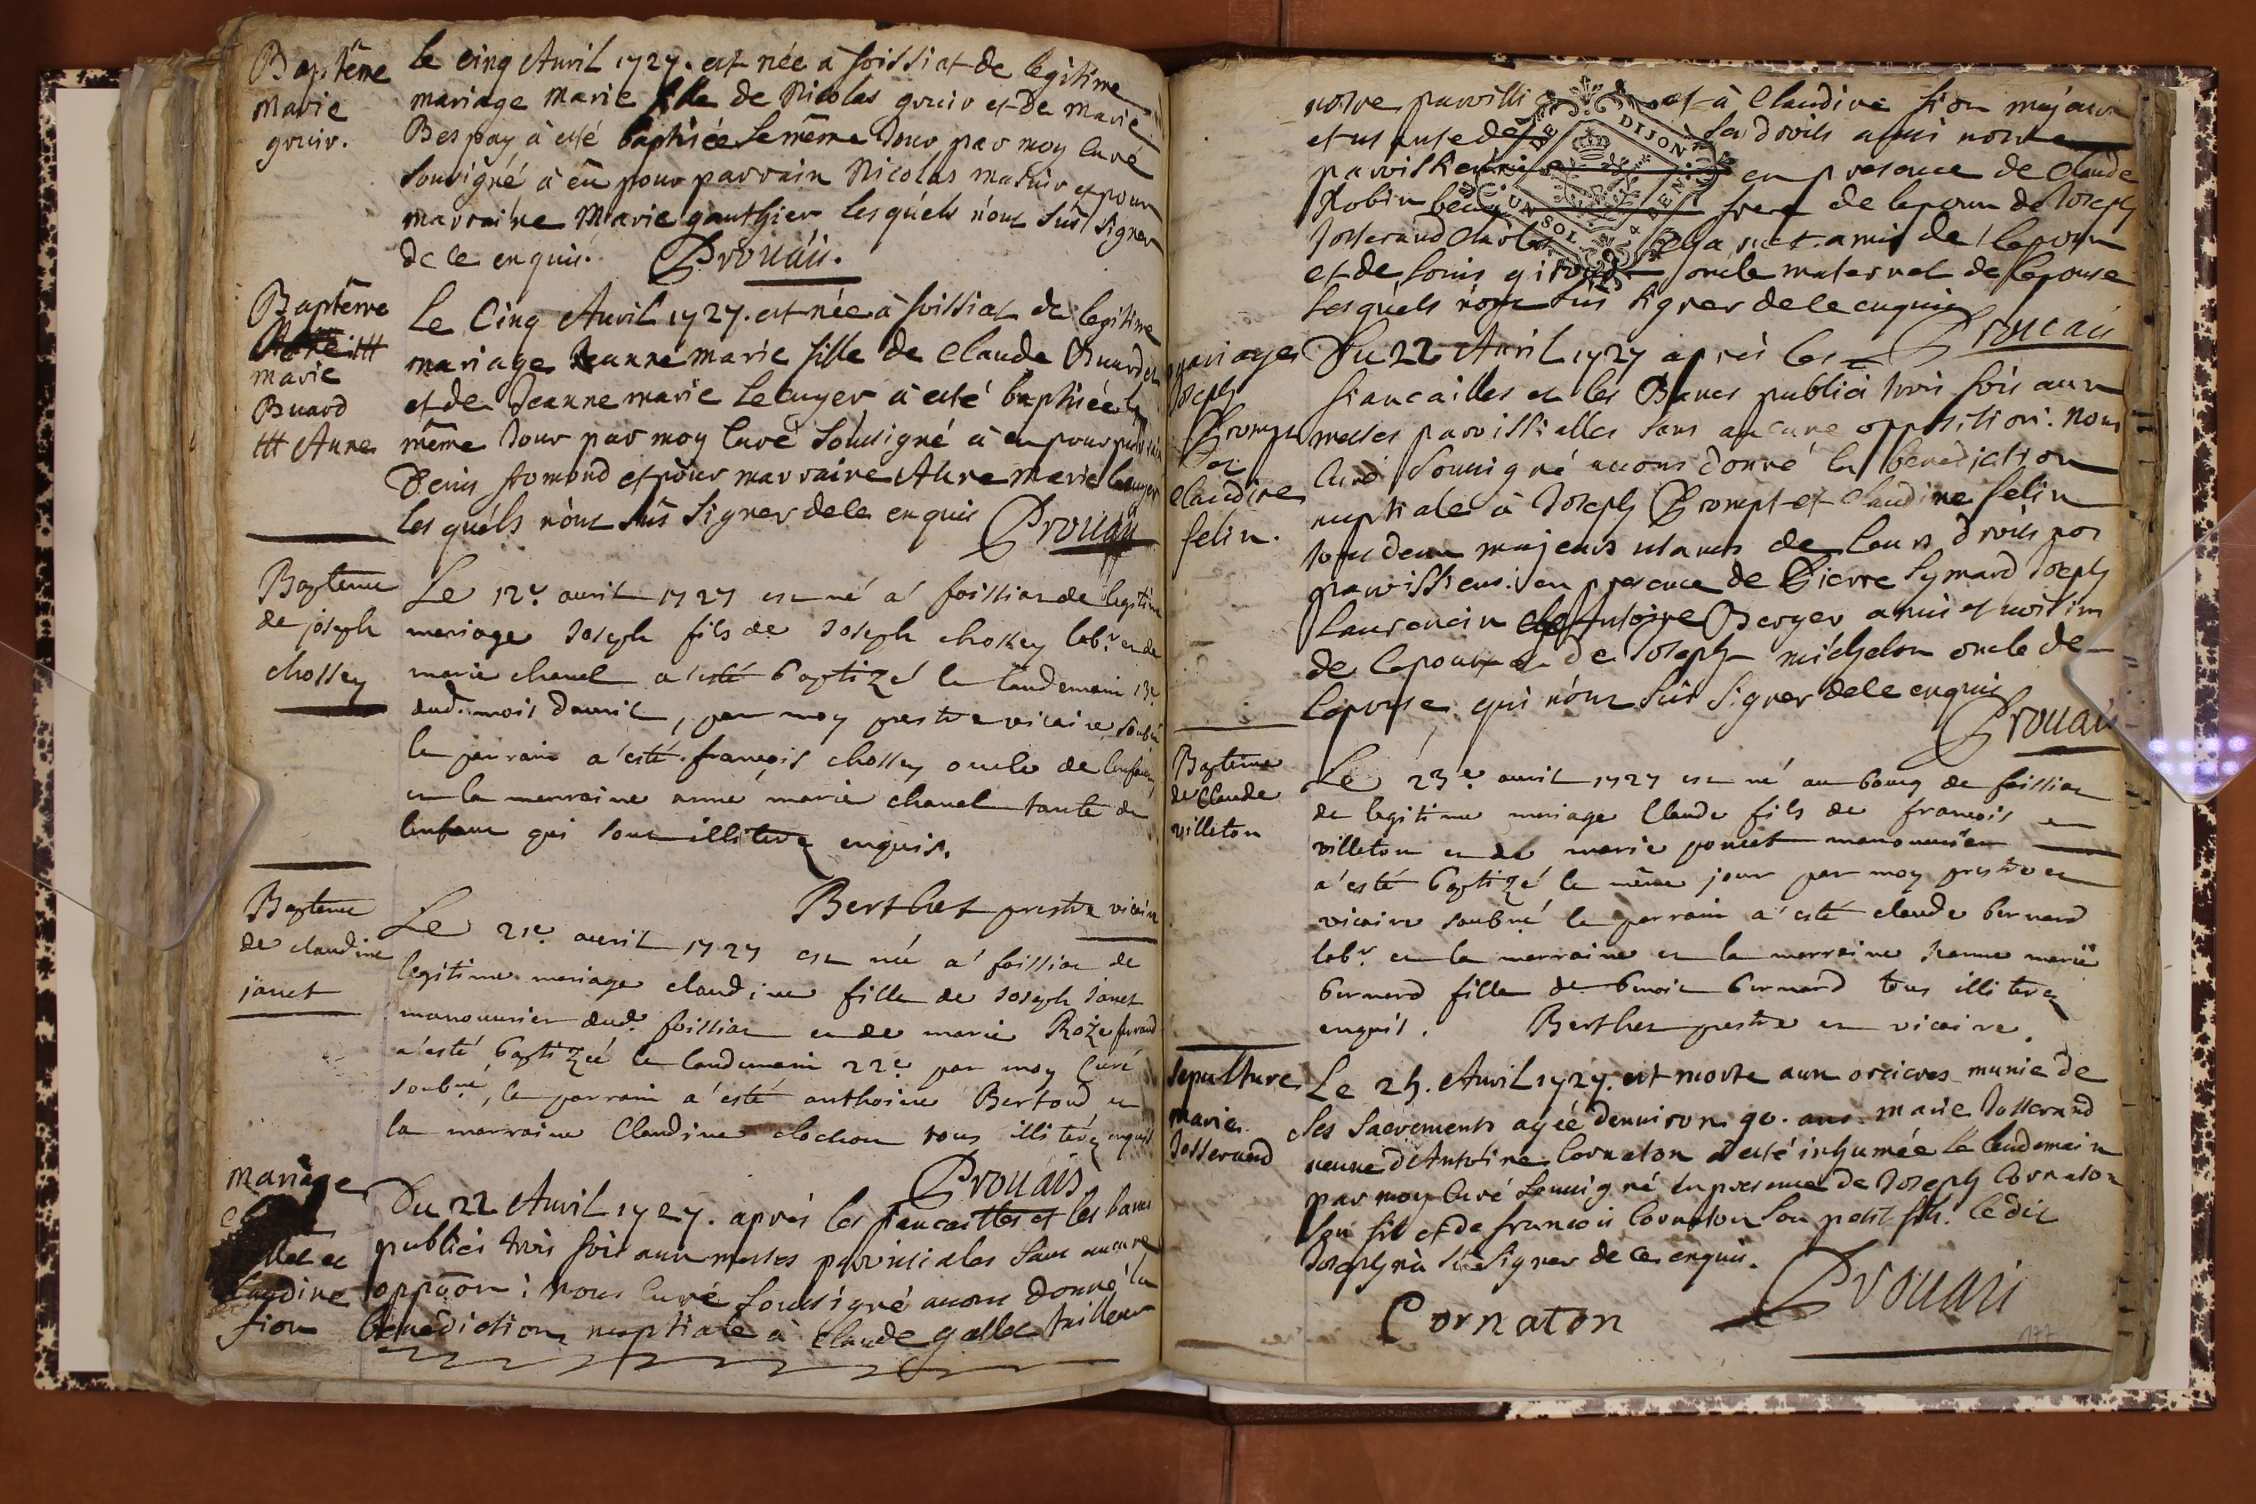 Baptême
Marie
gruir.
le cinq Avril 1727. est née à foissiat de legitime
mariage Marie fille de Nicolas gruir et De Marie
Bespay à esté baptisée le même Jour par moy Curé
sousigné à eu pour parrain Nicolas et pour
marraine Marie gauthier lesquels n'ont sus signer
de ce enquis. Prouais.
Baptême
marie
Buard
ttt Anne
Le Cinq Avril 1727. est née à foissiat de legitime
mariage Jeanne marie fille de Claude Buard
et de Jeanne marie Lecuyer à esté baptisée le
même Jour par moy Curé sousigné à eu pour parrain
Denis et pour marraine Anne Marie Lecuyer
lesquels n'ont sus signer de ce enquis Prouais
Bapteme
de joseph
chossey
Le 12e. avril 1727 est né a foissiat de legitime
mariage Joseph fils de Joseph chossey labr. et de
marie chanel a esté baptizé le landemain 13e.
dud. mois davril, par moy prestre vicaire soubné
le parrain a esté françois chossey oncle de lenfant
et la marraine anne marie chanel tante de
lenfant qui sont illiterez enquis.
Berthet prestre vicaire
Bapteme
de claudine
janet
Le 21e. avril 1727 est née a foissiat de
legitime mariage claudine fille de Joseph Janet
manouvrier dud. foissiat et de marie Roze
a esté baptizée le landemain 22e. par moy Curé
soubné, le parrain a esté anthoine Bertoud et
la marraine Claudine clochon tous illiterez enquis
Prouais
Mariage
llet et
Claudine
fion
Du 22 Avril 1727. après les fiancailles et les bans
publiés trois fois aux messes paroissiales sans aucune
oppõon: nous Curé sousigné avons donné la
Benediction nuptiale à Claude gallet tailleur
notre paroissi et à Claudine fion majeure
et usante de ses droits aussi notre
paroissienne en presence de Claude
Robin frere de lepoux de Joseph
Josserand amis de lepoux
et de Louis oncle maternel de lepouse
lesquels n'ont sus signer de ce enquis
Prouais
mariages
Joseph
Prompt
et
Claudine
felin.
Du 22 Avril 1727 après les
fiancailles et les Bancs publiés trois fois aux
messes paroissialles sans aucune opposition. Nous
Curé sousigné avons donné la benediction
nuptiale à Joseph Prompt et Claudine felin
tous deux majeurs usants de leurs droits nos
paroissiens: en presence de Pierre Symard Joseph
Laurencin Antoine Berger amis et voisins
de lepoux et de Joseph michelon oncle de
lepouse qui n'ont sus signer de ce enquis
Prouais
Bapteme
de Claude
villeton
Le 23e. avril 1727 est né au bourg de foissiat
de legitime mariage Claude fils de françois
villeton et de marie poncet manouvrier
a esté baptizé le même jour par moy prestre et
vicaire soubné le parrain a esté claude bernard
labr. et la marraine et la marraine Jeanne marie
bernard fille de benoit bernard tous illiterez
enquis. Berthet prestre et vicaire.
sepulture
Marie
Josserand
Le 25. Avril 1727. est morte aux orcieres munie de
ses sacrements agée d'environ 90. ans Marie Josserand
veuve d'Antoine Cornaton a esté inhumée le lendemain
par moy Curé sousigné en presence de Joseph Cornaton
son fils et de francois Cornaton son petit fils. Ledit
Joseph à sû signer de ce enquis.
Cornaton Prouais
DE DIJON
UN SOL
DEN
177